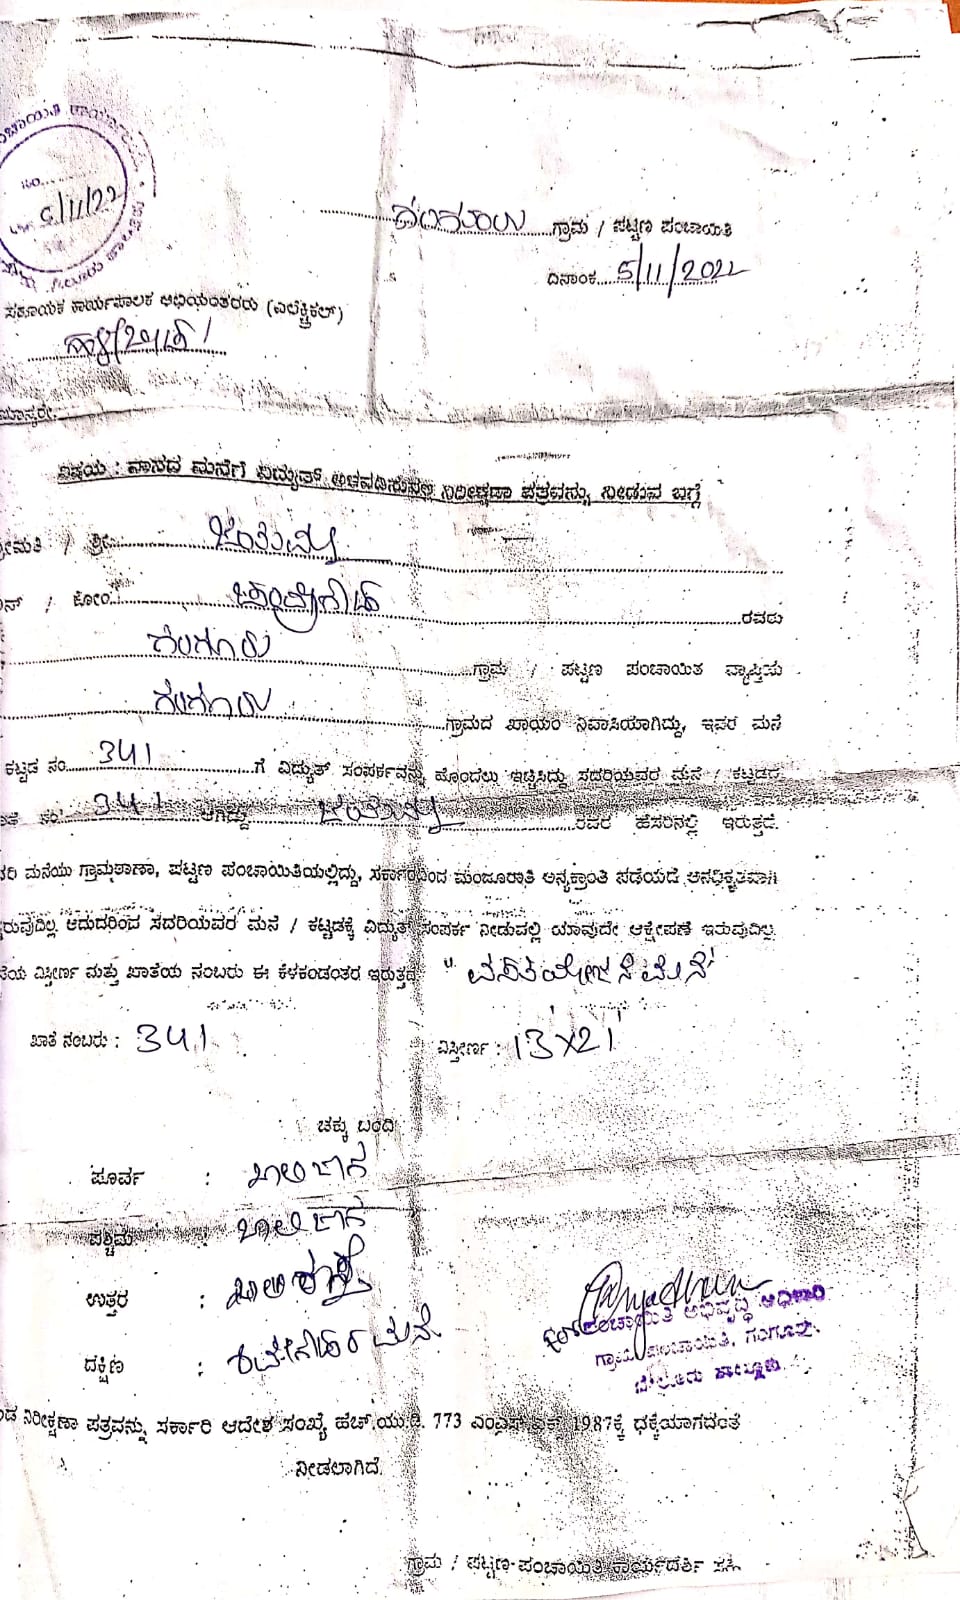 5/11/22
ಗಂಗೂರು ಗ್ರಾಮ / ಪಟ್ಟಣ ಪಂಚಾಯಿತಿ
ದಿನಾಂಕ 5/11/2022
ಸಹಾಯಕ ಕಾರ್ಯಪಾಲಕ ಅಭಿಯಂತರರು (ಎಲೆಕ್ಟ್ರಿಕಲ್)
ಮಾನ್ಯರೇ,
ವಿಷಯ : ವಾಸದ ಮನೆಗೆ ವಿದ್ಯುತ್ ಅಳವಡಿಸುವಲ್ಲಿ ನಿರೀಕ್ಷಣಾ ಪತ್ರವನ್ನು ನೀಡುವ ಬಗ್ಗೆ
ಶ್ರೀಮತಿ / ಶ್ರೀ
ಬಿನ್ / ಕೋಂ ರವರು
ಗಂಗೂರು ಗ್ರಾಮ / ಪಟ್ಟಣ ಪಂಚಾಯಿತಿ ವ್ಯಾಪ್ತಿಯ
ಗಂಗೂರು ಗ್ರಾಮದ ಖಾಯಂ ನಿವಾಸಿಯಾಗಿದ್ದು, ಇವರ ಮನೆ
ಕಟ್ಟಡ ನಂ 341 ಗೆ ವಿದ್ಯುತ್ ಸಂಪರ್ಕವನ್ನು ಹೊಂದಲು ಇಚ್ಚಿಸಿದ್ದು ಸದರಿಯವರ ಮನೆ / ಕಟ್ಟಡದ
ಖಾತೆ ನಂ 341 ಆಗಿದ್ದು ರವರ ಹೆಸರಿನಲ್ಲಿ ಇರುತ್ತದೆ.
ಸದರಿ ಮನೆಯು ಗ್ರಾಮಠಾಣಾ, ಪಟ್ಟಣ ಪಂಚಾಯಿತಿಯಲ್ಲಿದ್ದು, ಸರ್ಕಾರದಿಂದ ಮಂಜೂರಾತಿ ಅನ್ಯಕ್ರಾಂತಿ ಪಡೆಯದೆ ಅನಧಿಕೃತವಾಗಿ
ಇರುವುದಿಲ್ಲ ಆದುದರಿಂದ ಸದರಿಯವರ ಮನೆ / ಕಟ್ಟಡಕ್ಕೆ ವಿದ್ಯುತ್ ಸಂಪರ್ಕ ನೀಡುವಲ್ಲಿ ಯಾವುದೇ ಆಕ್ಷೇಪಣೆ ಇರುವುದಿಲ್ಲ
ವಿಸ್ತೀರ್ಣ ಮತ್ತು ಖಾತೆಯ ನಂಬರು ಈ ಕೆಳಕಂಡಂತರ ಇರುತ್ತದೆ.
ಖಾತೆ ನಂಬರು : 341 ವಿಸ್ತೀರ್ಣ : 13'x21'
ಚಕ್ಕು ಬಂದಿ
ಪೂರ್ವ : ಖಾಲಿ ಜಾಗ
ಪಶ್ಚಿಮ : ಖಾಲಿ ಜಾಗ
ಉತ್ತರ : ಖಾಲಿ
ದಕ್ಷಿಣ : ಮನೆ
ಪಂಚಾಯಿತಿ ಅಭಿವೃದ್ಧಿ ಅಧಿಕಾರಿ
ಗ್ರಾಮ ಪಂಚಾಯಿತಿ, ಗಂಗೂರು.
ಬೇಲೂರು ತಾಲ್ಲೂಕು.
ನಿರೀಕ್ಷಣಾ ಪತ್ರವನ್ನು ಸರ್ಕಾರಿ ಆದೇಶ ಸಂಖ್ಯೆ ಹೆಚ್.ಯು.ಡಿ. 773 1987ಕ್ಕೆ ಧಕ್ಕೆಯಾಗದಂತೆ
ನೀಡಲಾಗಿದೆ.
ಗ್ರಾಮ / ಪಟ್ಟಣ ಪಂಚಾಯಿತಿ ಕಾರ್ಯದರ್ಶಿ ಸಹಿ